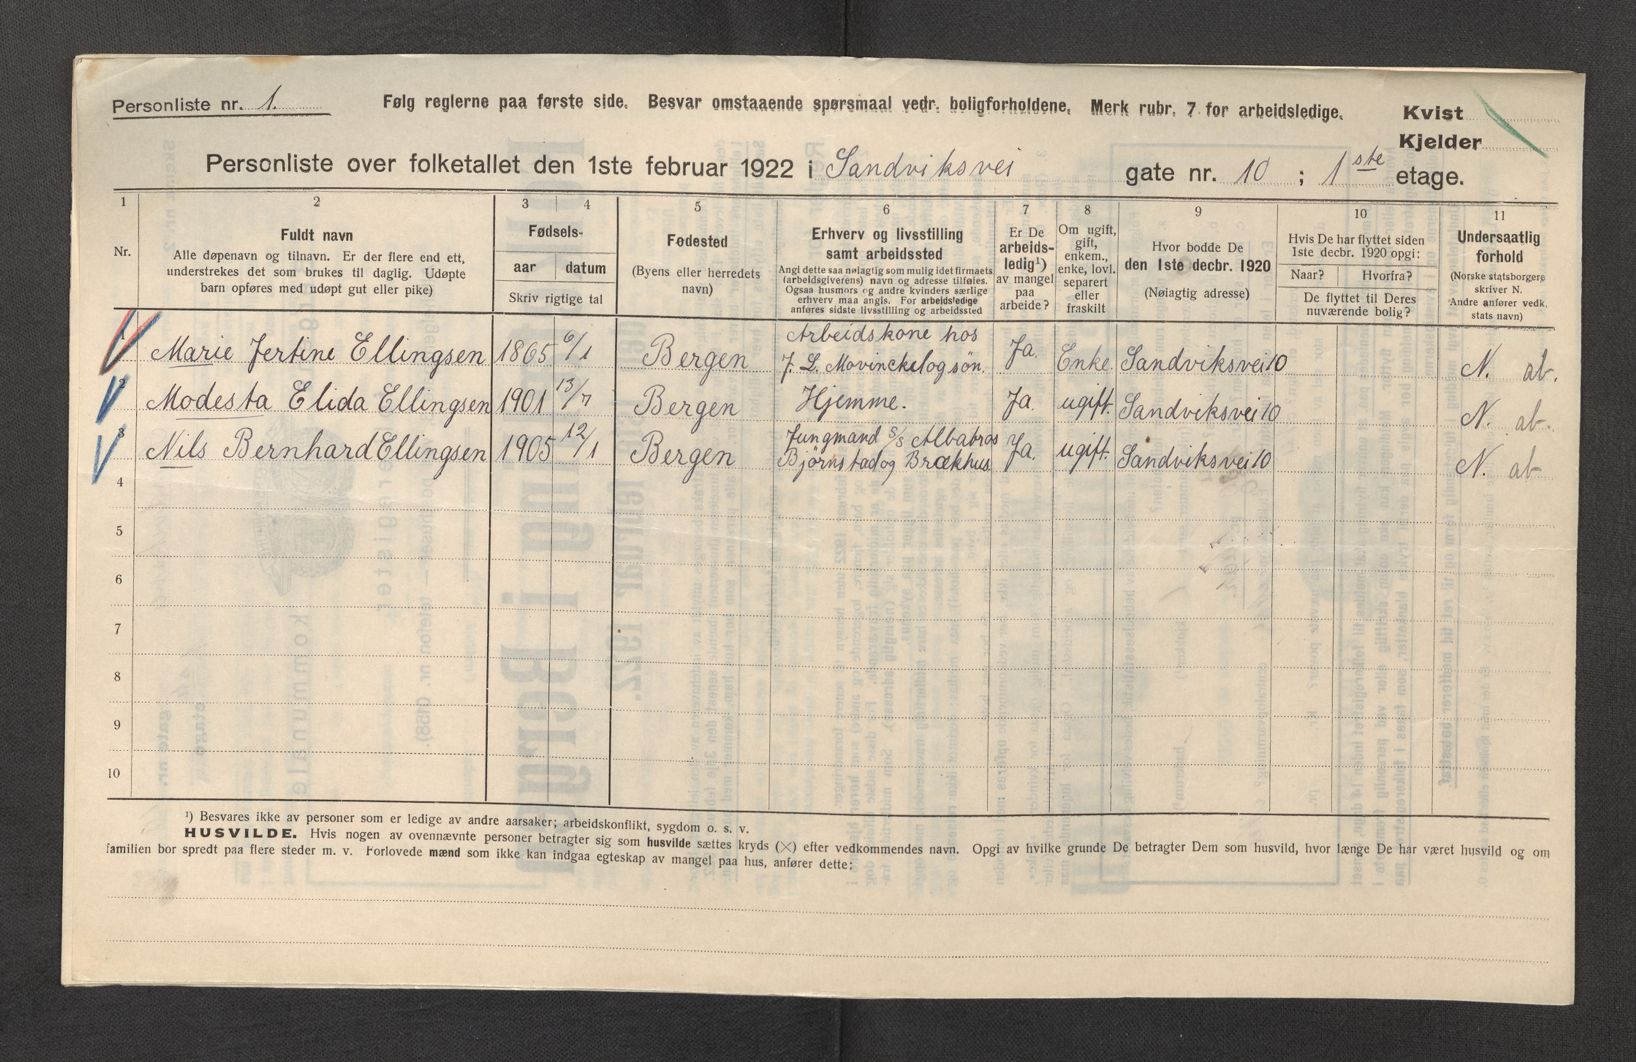 Personliste nr. 1.
Følg reglerne paa første side. Besvar omstaaende spørsmaal vedr. boligforholdene. Merk rubr. 7 for arbeidsledige.
Kvist
Kjelder
Personliste over folketallet den 1ste februar 1922 i Sandviksvei gate nr. 10 ; 1ste etage.
1 2 3 4 5 6 7 8 9 10 11
Nr.
Fuldt navn
Alle døpenavn og tilnavn. Er der flere end ett,
understrekes det som brukes til daglig. Udøpte
barn opføres med udøpt gut eller pike)
Fødsels-
aar datum
Skriv rigtige tal
Fødested
(Byens eller herredets
navn)
Erhverv og livsstilling
samt arbeidssted
Angi dette saa nøiagtig som mulig idet firmaets
(arbeidsgiverens) navn og adresse tilføies.
Ogsaa husmors og andre kvinders særlige
erhverv maa angis. For arbeidsledige
anføres sidste livsstilling og arbeidssted
Er De
arbeids-
ledig¹)
av mangel
paa
arbeide?
Om ugift,
gift,
enkem.,
enke, lovl.
separert
eller
fraskilt
Hvor bodde De
den 1ste decbr. 1920
(Nøiagtig adresse)
Hvis De har flyttet siden
1ste decbr. 1920 opgi:
Naar? Hvorfra?
De flyttet til Deres
nuværende bolig?
Undersaatlig
forhold
(Norske statsborgere
skriver N.
Andre anfører vedk.
stats navn)
1 Marie Jertine Ellingsen 1865 6/1 Bergen Arbeidskone hos J. L. Movinckel og søn. Ja. Enke. Sandviksvei 10 N. ab.
2 Modesta Elida Ellingsen 1901 13/7 Bergen Hjemme. Ja ugift. Sandviksvei 10 N. ab.
3 Nils Bernhard Ellingsen 1905 12/1 Bergen Jungmand s/s Albabros Bjørnstad og Brækhus Ja. ugift. Sandviksvei 10 N. ab
4
5
6
7
8
9
10
¹) Besvares ikke av personer som er ledige av andre aarsaker; arbeidskonflikt, sygdom o. s. v.
HUSVILDE. Hvis nogen av ovennævnte personer betragter sig som husvilde sættes kryds (×) efter vedkommendes navn. Opgi av hvilke grunde De betragter Dem som husvild, hvor længe De har været husvild og om
familien bor spredt paa flere steder m. v. Forlovede mænd som ikke kan indgaa egteskap av mangel paa hus, anfører dette: